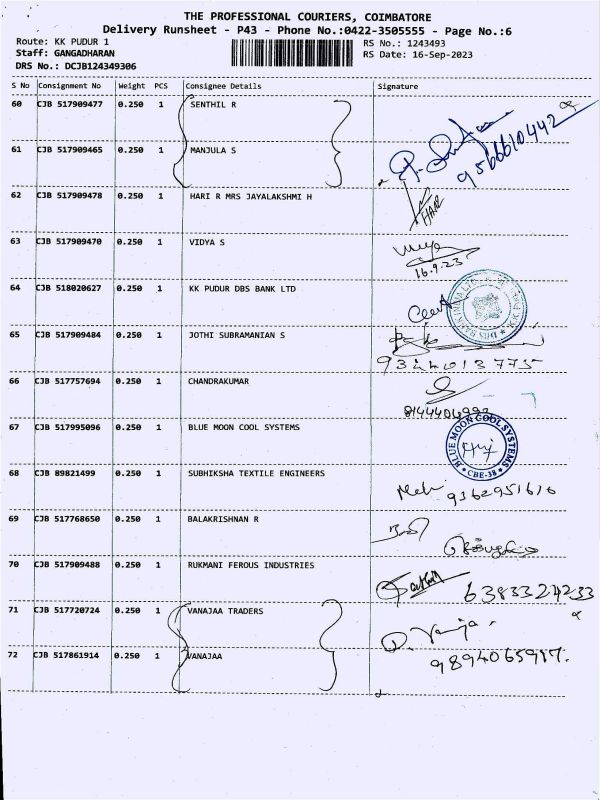 THE PROFESSIONAL COURIERS, COIMBATORE
Delivery Runsheet - P43 - Phone No.:0422-3505555 - Page No.:6
Route: KK PUDUR 1 RS No.: 1243493
Staff: GANGADHARAN RS Date: 16-Sep-2023
DRS No.: DCJB124349306
S No Consignment No Weight PCS Consignee Details Signature
60 CJB 517909477 0.250 1 SENTHIL R
61 CJB 517909465 0.250 1 MANJULA S 9566610442
62 CJB 517909478 0.250 1 HARI R MRS JAYALAKSHMI H HARI
63 CJB 517909470 0.250 1 VIDYA S
16.9.23
64 CJB 518020627 0.250 1 KK PUDUR DBS BANK LTD
65 CJB 517909484 0.250 1 JOTHI SUBRAMANIAN S
66 CJB 517757694 0.250 1 CHANDRAKUMAR
67 CJB 517995096 0.250 1 BLUE MOON COOL SYSTEMS BLUE MOON COOL SYSTEMS
CBE-38
68 CJB 89821499 0.250 1 SUBHIKSHA TEXTILE ENGINEERS
9362951616
69 CJB 517768650 0.250 1 BALAKRISHNAN R
70 CJB 517909488 0.250 1 RUKMANI FEROUS INDUSTRIES
6383324233
71 CJB 517720724 0.250 1 VANAJAA TRADERS
72 CJB 517861914 0.250 1 VANAJAA